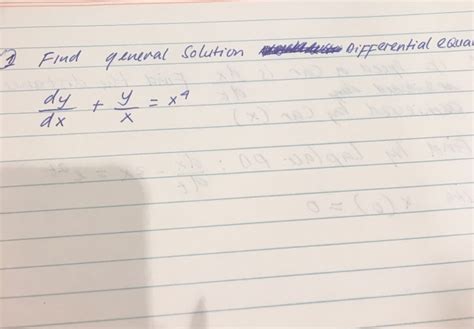 1 Find general Solution Differential equa
dy/dx + y/x = x⁴